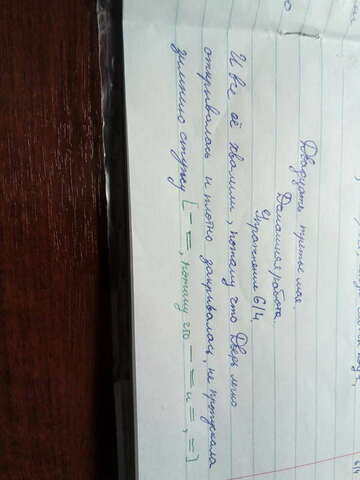 Двадцать третье мая
Домашняя работа.
Упражнение 614
И все её хвалили, потому что дверь легко
открывалась и плотно закрывалась, не пропускала
зимнюю стужу [– =, потому что – = и =, =]
614